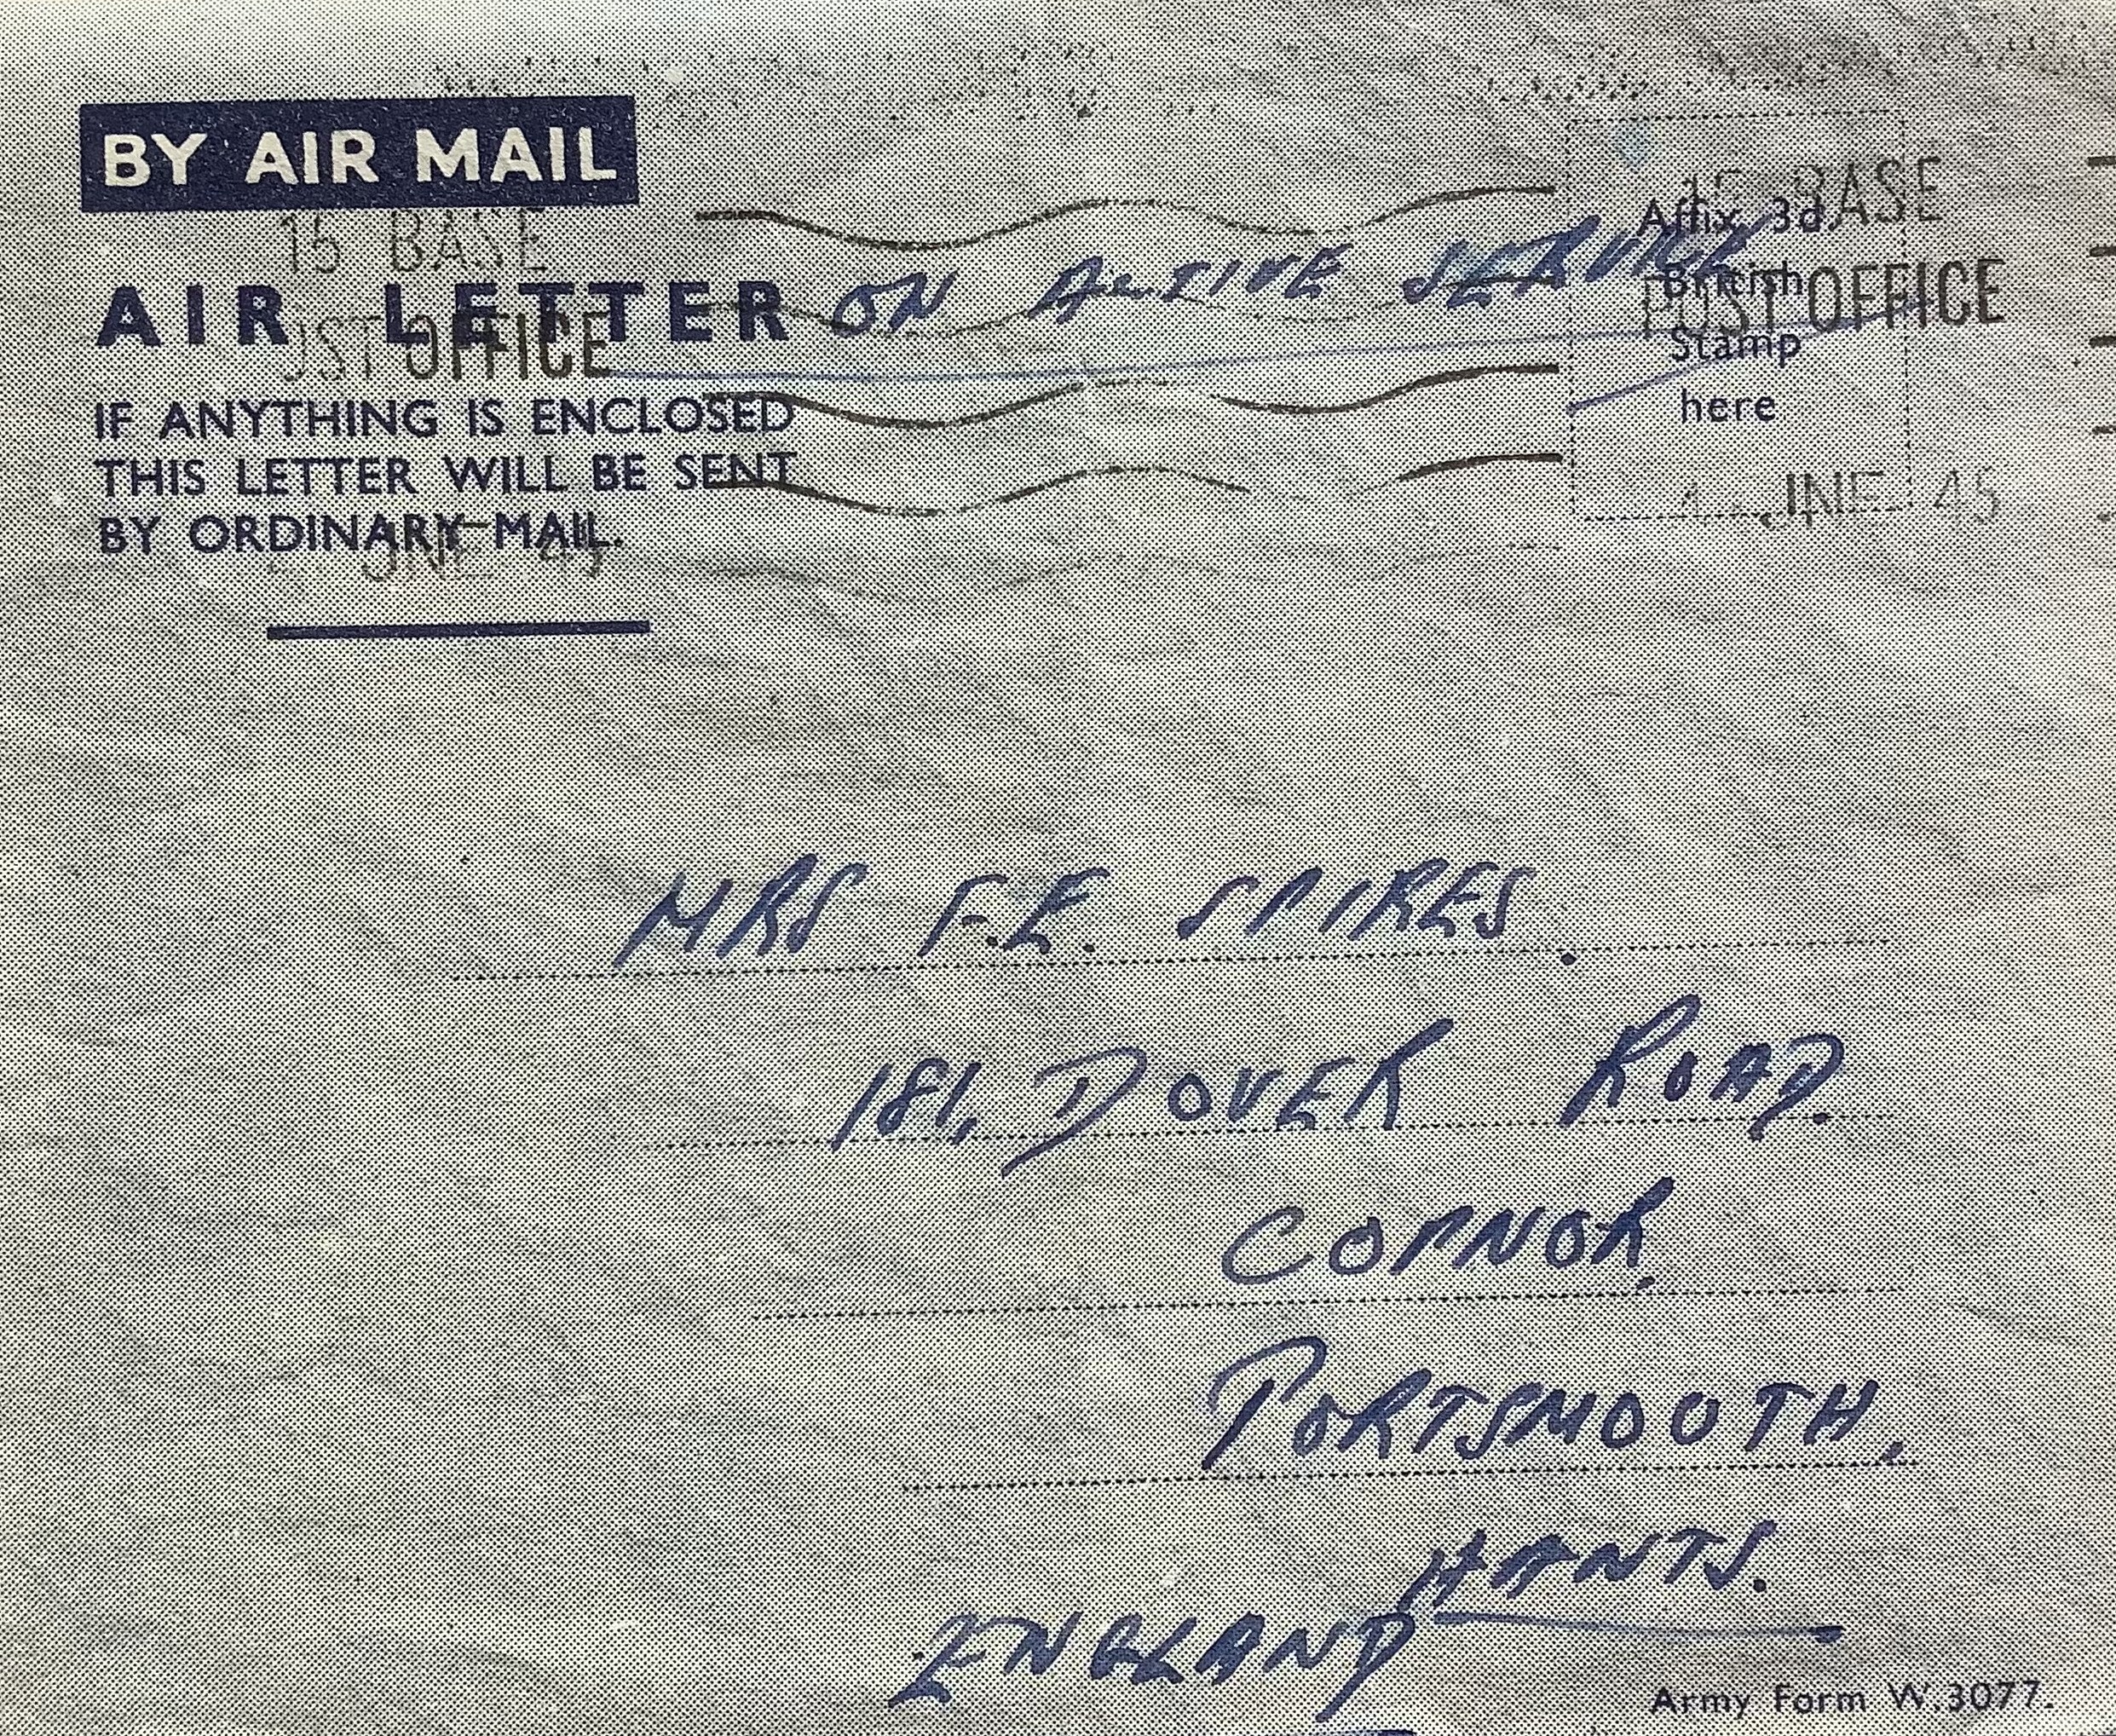 BY AIR MAIL
15 BASE
15 BASE
Affix 3d.
AIR LETTER
ON ACTIVE SERVICE
British
POST OFFICE
OFFICE
Stamp
here
IF ANYTHING IS ENCLOSED
THIS LETTER WILL BE SENT
BY ORDINARY MAIL.
JNE 45
JNE 45
MRS F.E. SPIRES.
181, DOVER ROAD.
COPNOR.
PORTSMOUTH,
HANTS.
ENGLAND
Army Form W.3077.